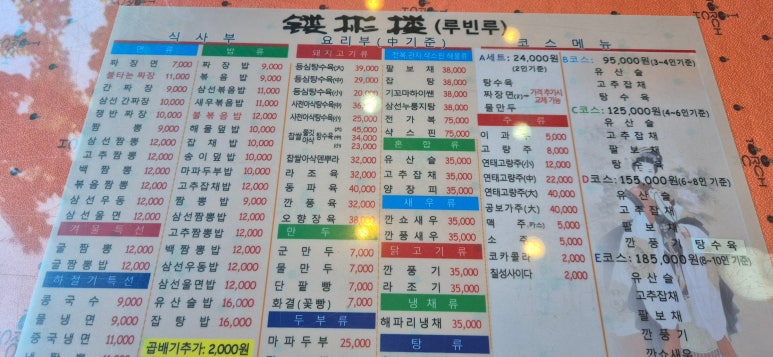 鏤彬樓 (루빈루)
식사부
면류
짜장면 7,000
불타는 짜장 11,000
간짜장 9,000
삼선간짜장 10,000
쟁반짜장 10,000
짬뽕 9,000
삼선짬뽕 12,000
고추짬뽕 12,000
백짬뽕 12,000
볶음짬뽕 12,000
삼선우동 12,000
삼선울면 12,000
겨울특선
굴짬뽕 12,000
굴짬뽕밥 12,000
하절기특선
중국수 9,000
물냉면 9,000
중국냉면 11,000
밥류
짜장밥 9,000
볶음밥 9,000
삼선볶음밥 11,000
새우볶음밥 11,000
불볶음밥 12,000
해물덮밥 10,000
잡채밥 10,000
송이덮밥 10,000
마파두부밥 10,000
고추잡채밥 12,000
짬뽕밥 9,000
삼선짬뽕밥 12,000
고추짬뽕밥 12,000
백짬뽕밥 12,000
삼선우동밥 12,000
삼선울면밥 12,000
유산슬밥 16,000
잡탕밥 16,000
곱배기추가: 2,000원
요리부(中기준)
돼지고기류
등심탕수육(大) 39,000
등심탕수육(中)
등심탕수육(小)
사천아삭탕수육(中) 36,000
사천아삭탕수육(小) 25,000
찹쌀 탕수육 45,000
34,000
23,000
찹쌀아삭덴뿌라 32,000
라조육 32,000
동파육 40,000
깐풍육 32,000
오향장육 38,000
만두
군만두 7,000
물만두 7,000
단팥빵 7,000
화결(꽃빵) 7,000
두부류
마파두부 25,000
팔보채 38,000
잡탕 38,000
기꼬마하이싼 38,000
삼선누룽지탕 38,000
전가복 75,000
샥스핀 75,000
혼합류
유산슬 35,000
고추잡채 35,000
양장피 35,000
새우류
깐쇼새우 35,000
깐풍새우 35,000
닭고기류
깐풍기 35,000
라조기 35,000
냉채류
해파리냉채 35,000
탕류
코스메뉴
A세트: 24,000원
(2인기준)
탕수육
짜장면(2)= 가격 추가시 교체 가능
물만두
주류
이과주 5,000
고량주 8,000
연태고량주(小) 12,000
연태고량주(中) 22,000
연태고량주(大) 40,000
공보가주(大) 40,000
맥주(카스) 5,000
소주 5,000
코카콜라 2,000
칠성사이다 2,000
B코스: 95,000원(3~4인기준)
유산슬
고추잡채
탕수육
C코스: 125,000원(4~6인기준)
유산슬
고추잡채
팔보채
탕수육
D코스: 155,000원(6~8인기준)
유산슬
고추잡채
팔보채
깐풍기 탕수육
E코스: 185,000원(8~10인기준)
유산슬
고추잡채
팔보채
깐풍기
깐쇼새우